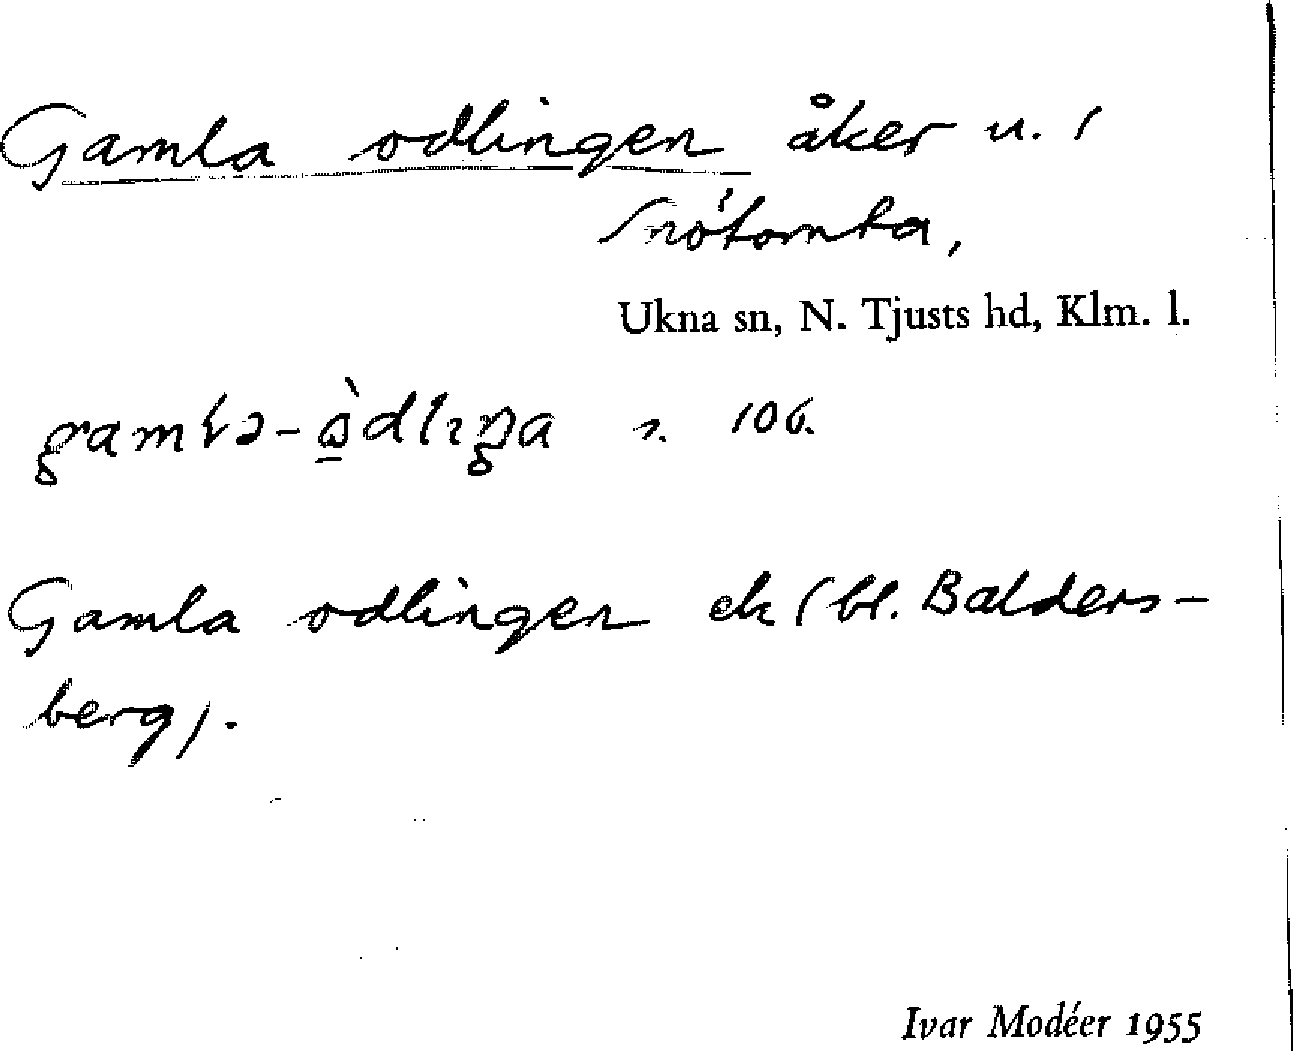 Gamla odlingen åker u. /
Snötomta,
Ukna sn, N. Tjusts hd, Klm. l.
s. 106.
Gamla odlingen ek (bl. Balders-
berg).
Ivar Modéer 1955